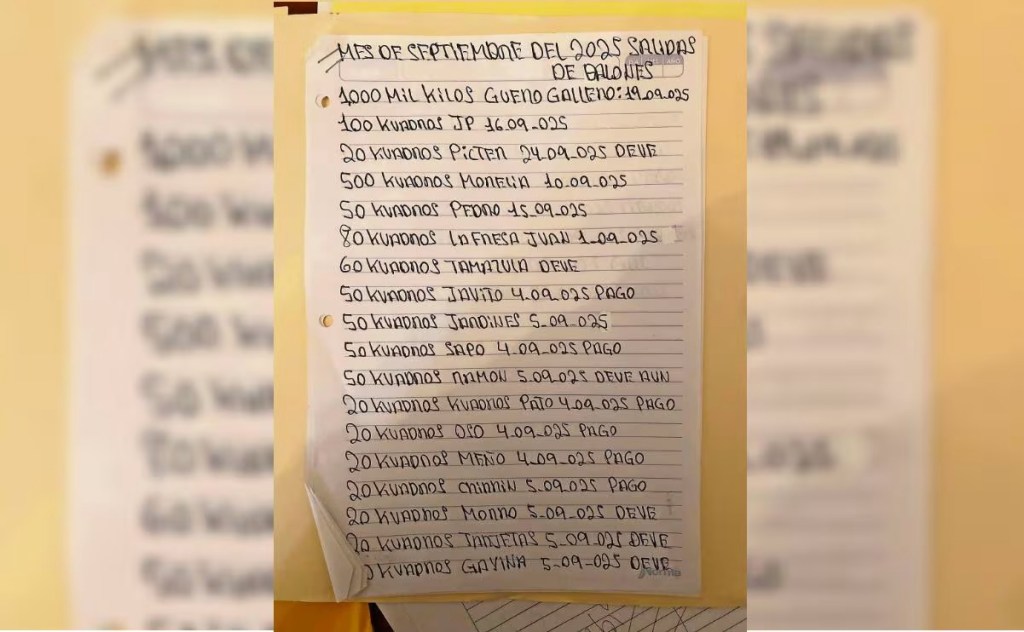 MES DE SEPTIEMBRE DEL 2025 SALIDAS
DE BALONES
1000 MIL KILOS GUERO GALLERO: 19.09.025
100 KUADROS JP 16.09_025
20 KUADROS PICTER 24.09_025 DEVE
500 KUADROS MORELIA 10.09.025
50 KUADROS PEDRO 15_09_025
80 KUADROS LA FRESA JUAN 1_09_025
60 KUADROS TAMAZULA DEVE
50 KUADROS JAVITO 4.09_025 PAGO
50 KUADROS JARDINES 5_09_025
50 KUADROS SAPO 4_09_025 PAGO
50 KUADROS RAMON 5.09.025 DEVE AUN
20 KUADROS KUADROS PATO 4.09_025 PAGO
20 KUADROS OSO 4_09_025 PAGO
20 KUADROS MEÑO 4_09_025 PAGO
20 KUADROS 5_09_025 PAGO
20 KUADROS MORRO 5_09_025 DEVE
20 KUADROS TARJETAS 5_09_025 DEVE
KUADROS 5_09_025 DEVE
Norma